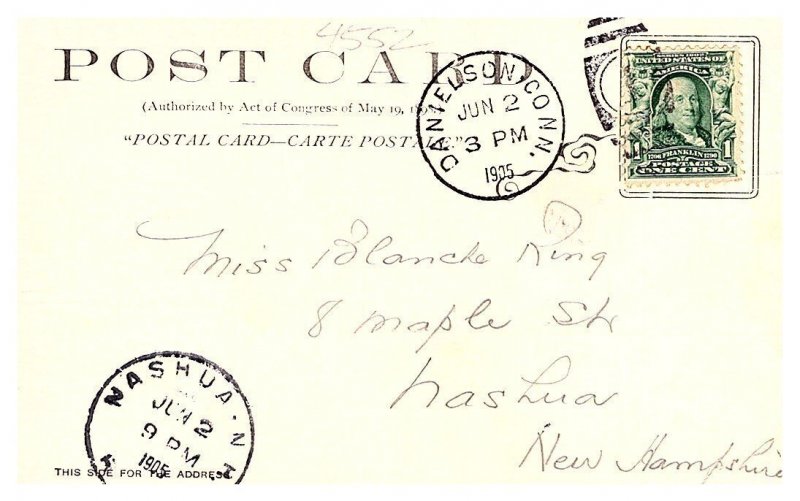 4552
POST CARD
(Authorized by Act of Congress of May 19, 1898)
"POSTAL CARD—CARTE POSTALE"
DANIELSON, CONN.
JUN 2
3 PM
1905
SERIES 1902
UNITED STATES OF
AMERICA
1790 FRANKLIN 1790
POSTAGE
1 ONE CENT 1
Miss Blanche King
8 maple Str
Nashua
New Hampshire
NASHUA. N.H.
JUN 2
9 PM
1905
THIS SIDE FOR THE ADDRESS